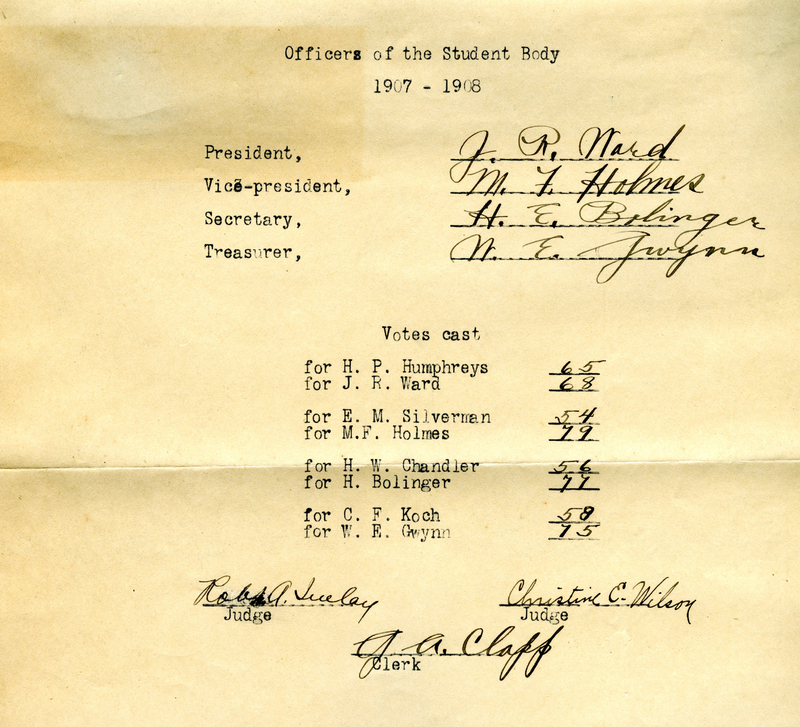 Officers of the Student Body
1907 - 1908
President, J. R. Ward
Vice-president, M. F. Holmes
Secretary, H. E. Bolinger
Treasurer, W. E. Gwynn
Votes cast
for H. P. Humphreys 65
for J. R. Ward 68
for E. M. Silverman 54
for M.F. Holmes 79
for H. W. Chandler 56
for H. Bolinger 77
for C. F. Koch 58
for W. E. Gwynn 75
A. Christine E. Wilson
Judge Judge
A. Clapp
Clerk